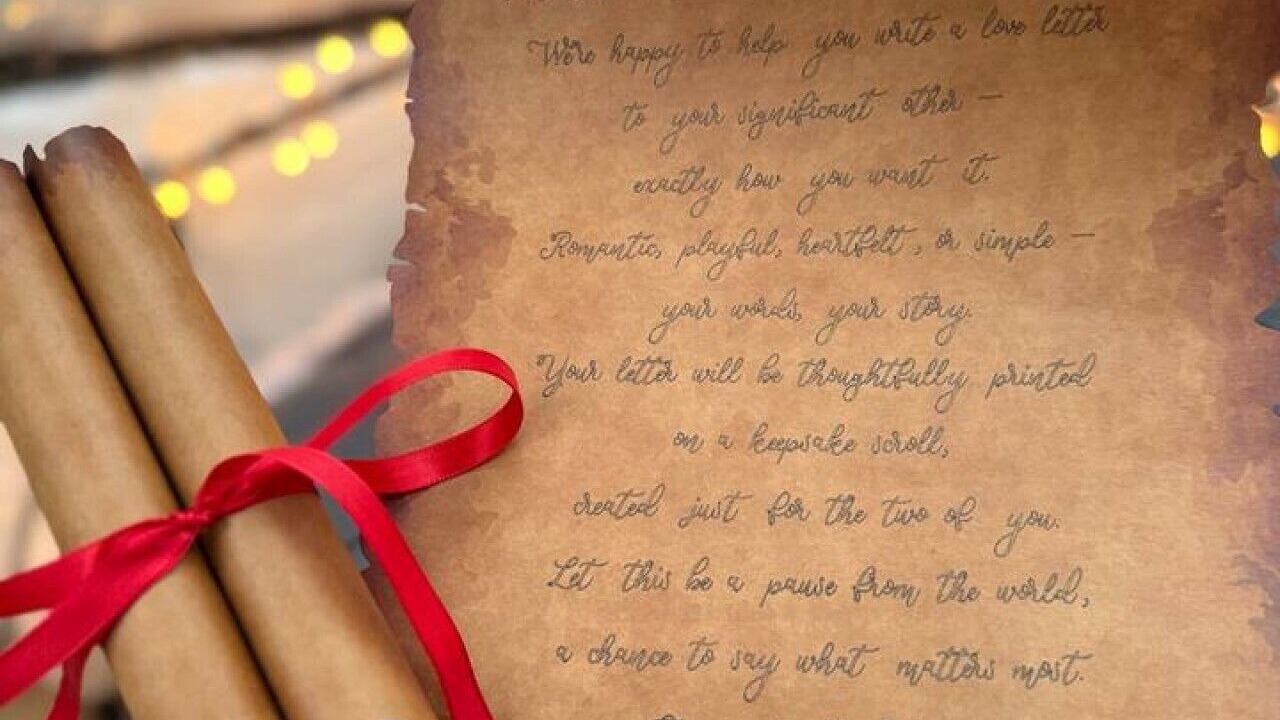 We're happy to help you write a love letter
to your significant other —
exactly how you want it.
Romantic, playful, heartfelt, or simple —
your words, your story.
Your letter will be thoughtfully printed
on a keepsake scroll,
created just for the two of you.
Let this be a pause from the world,
a chance to say what matters most.